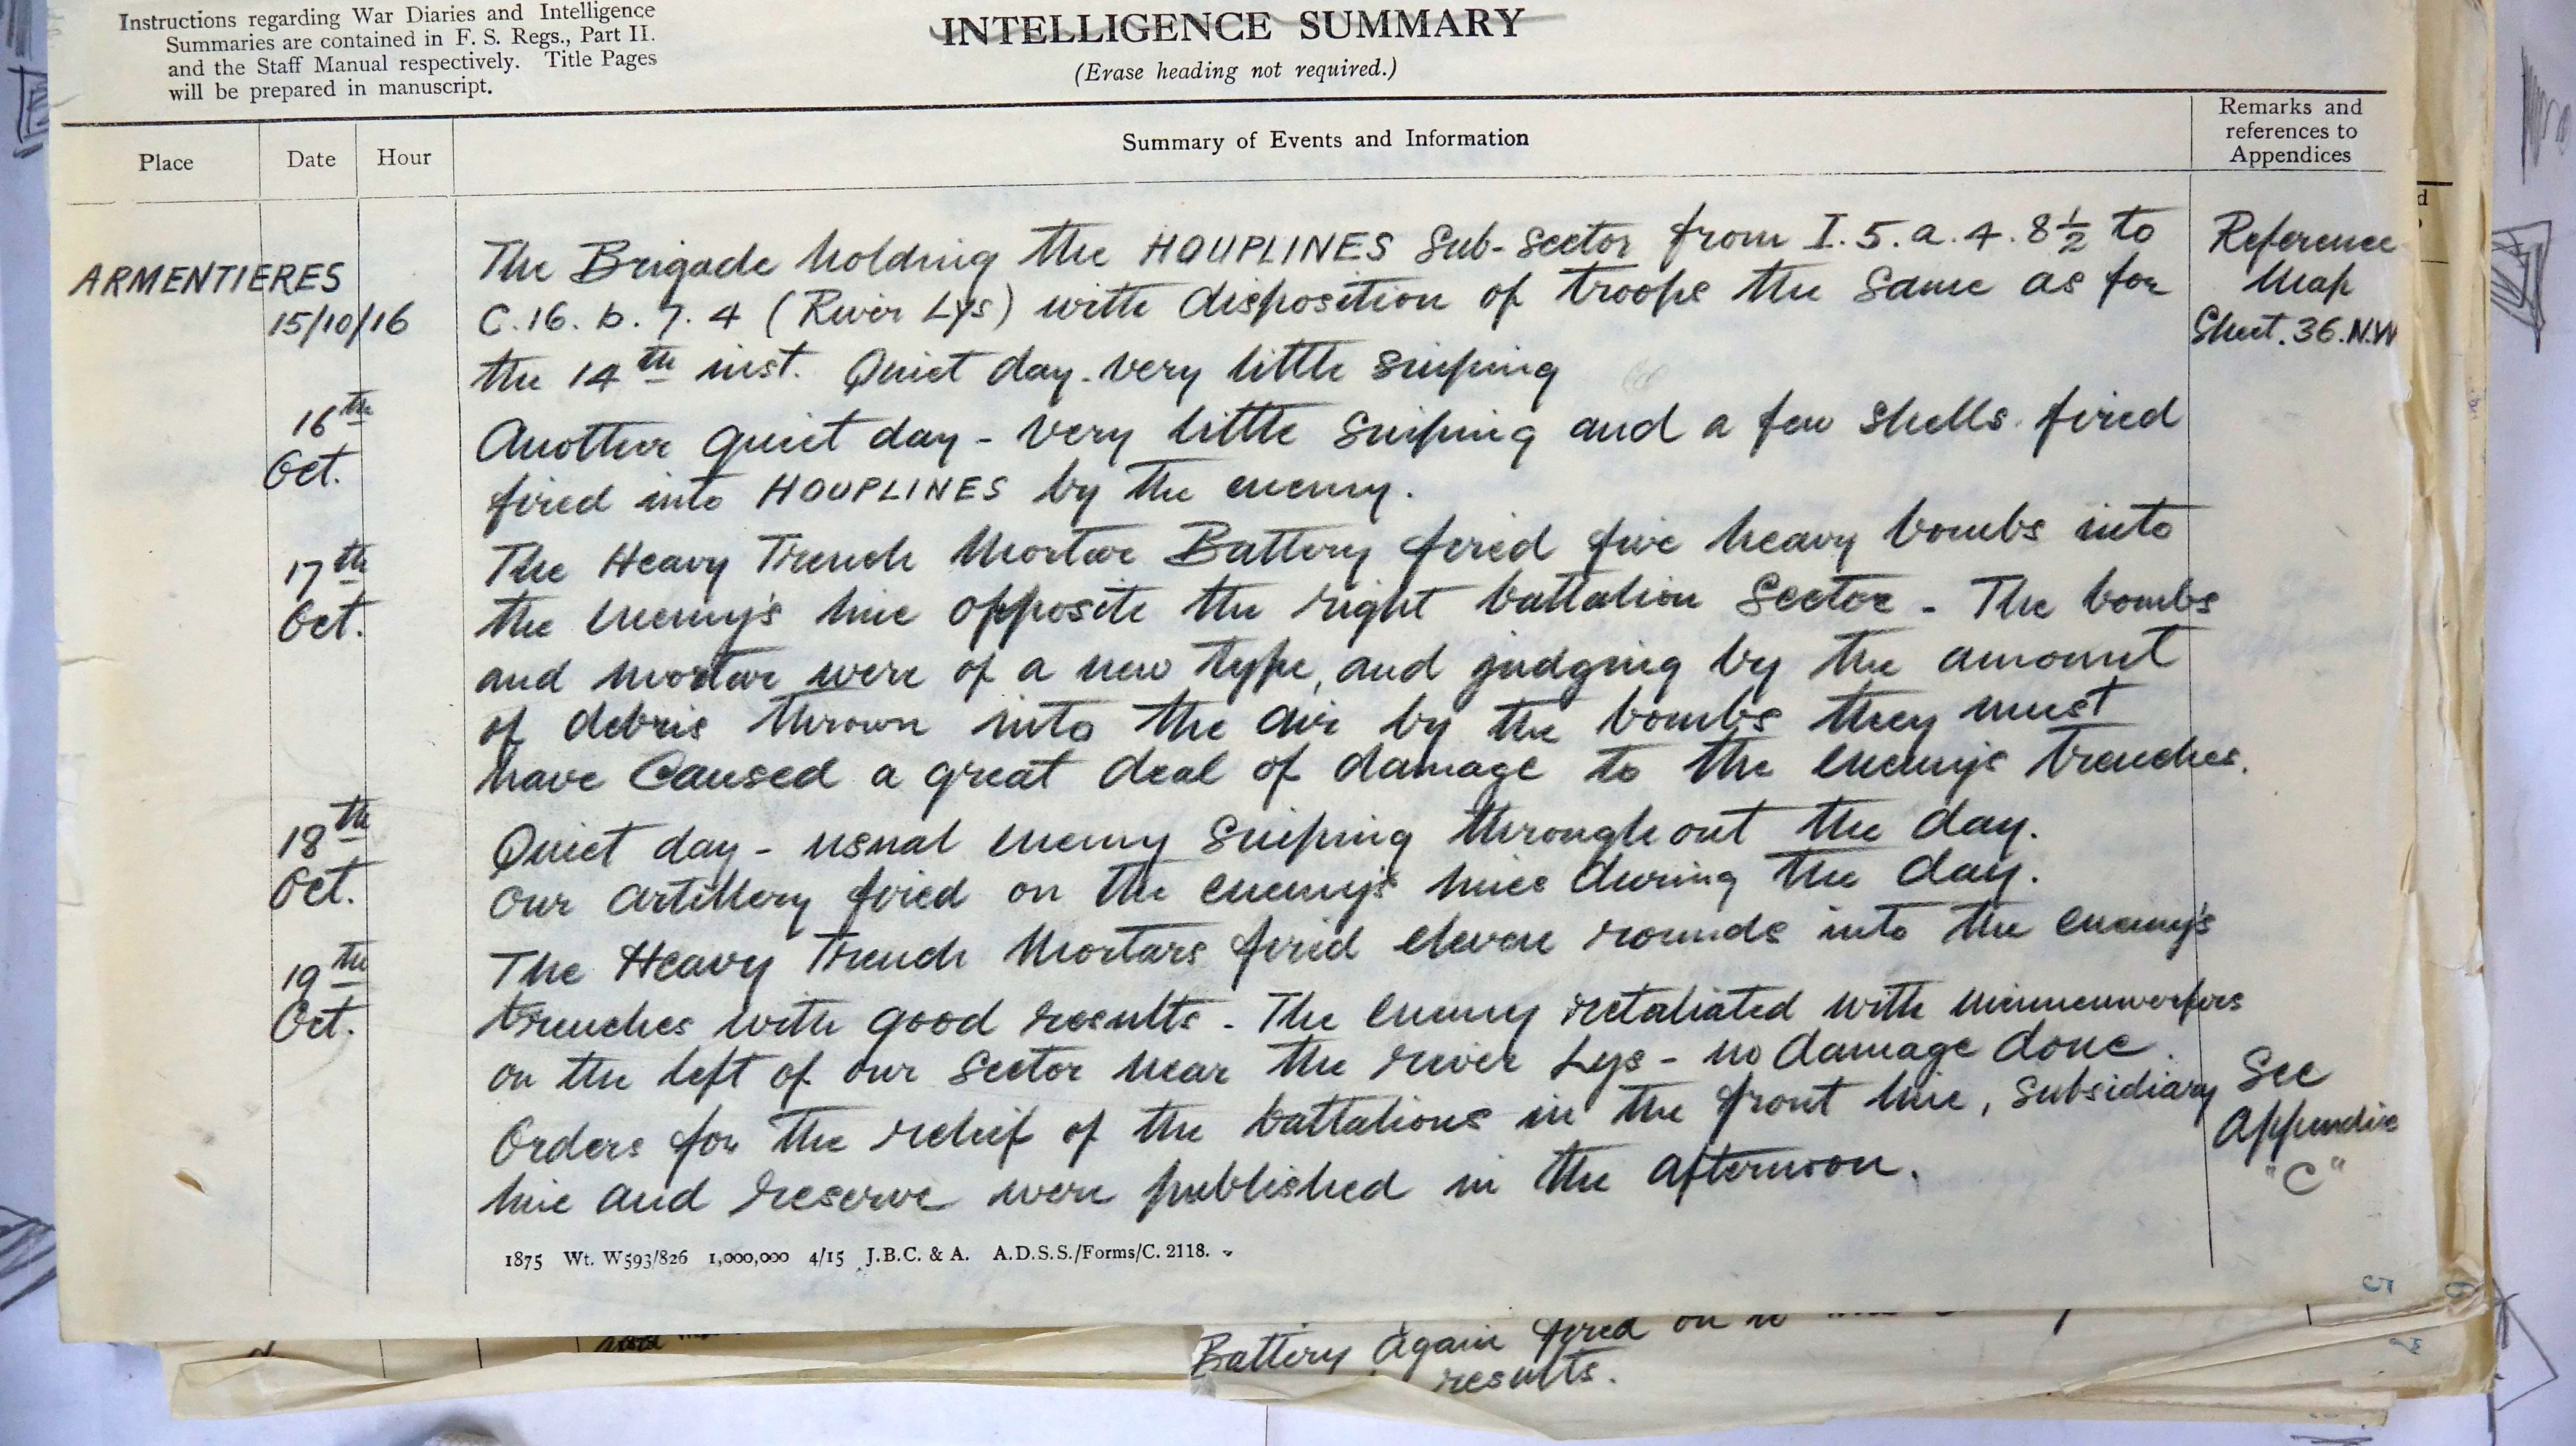 Instructions regarding War Diaries and Intelligence
Summaries are contained in F. S. Regs., Part II.
and the Staff Manual respectively. Title Pages
will be prepared in manuscript.
INTELLIGENCE SUMMARY
(Erase heading not required.)
Place
Date
Hour
Summary of Events and Information
Remarks and
references to
Appendices
ARMENTIERES
15/10/16
The Brigade holding the HOUPLINES Sub-Sector from I.5.a.4.8½ to
C.16.b.7.4 (River Lys) with disposition of troops the same as for
the 14th inst. Quiet day. very little sniping
Reference
Map
Sheet.36.N.W
16th
Oct.
Another quiet day - very little sniping and a few shells fired
fired into HOUPLINES by the enemy.
17th
Oct.
The Heavy Trench Mortar Battery fired five heavy bombs into
the enemy's line opposite the right battalion Sector - The bombs
and mortar were of a new type, and judging by the amount
of debris thrown into the air by the bombs they must
have caused a great deal of damage to the enemy's trenches.
18th
Oct.
Quiet day - usual enemy sniping throughout the day.
Our artillery fired on the enemy's lines during the day.
19th
Oct.
The Heavy Trench Mortars fired eleven rounds into the enemy's
trenches with good results - The enemy retaliated with minnenwerfers
on the left of our Sector near the river Lys - no damage done.
Orders for the relief of the battalions in the front line, subsidiary
line and reserve were published in the afternoon.
See
Appendix
"C"
1875 Wt. W593/826 1,000,000 4/15 J.B.C. & A. A.D.S.S./Forms/C. 2118.
5
Battery again fired on
results.